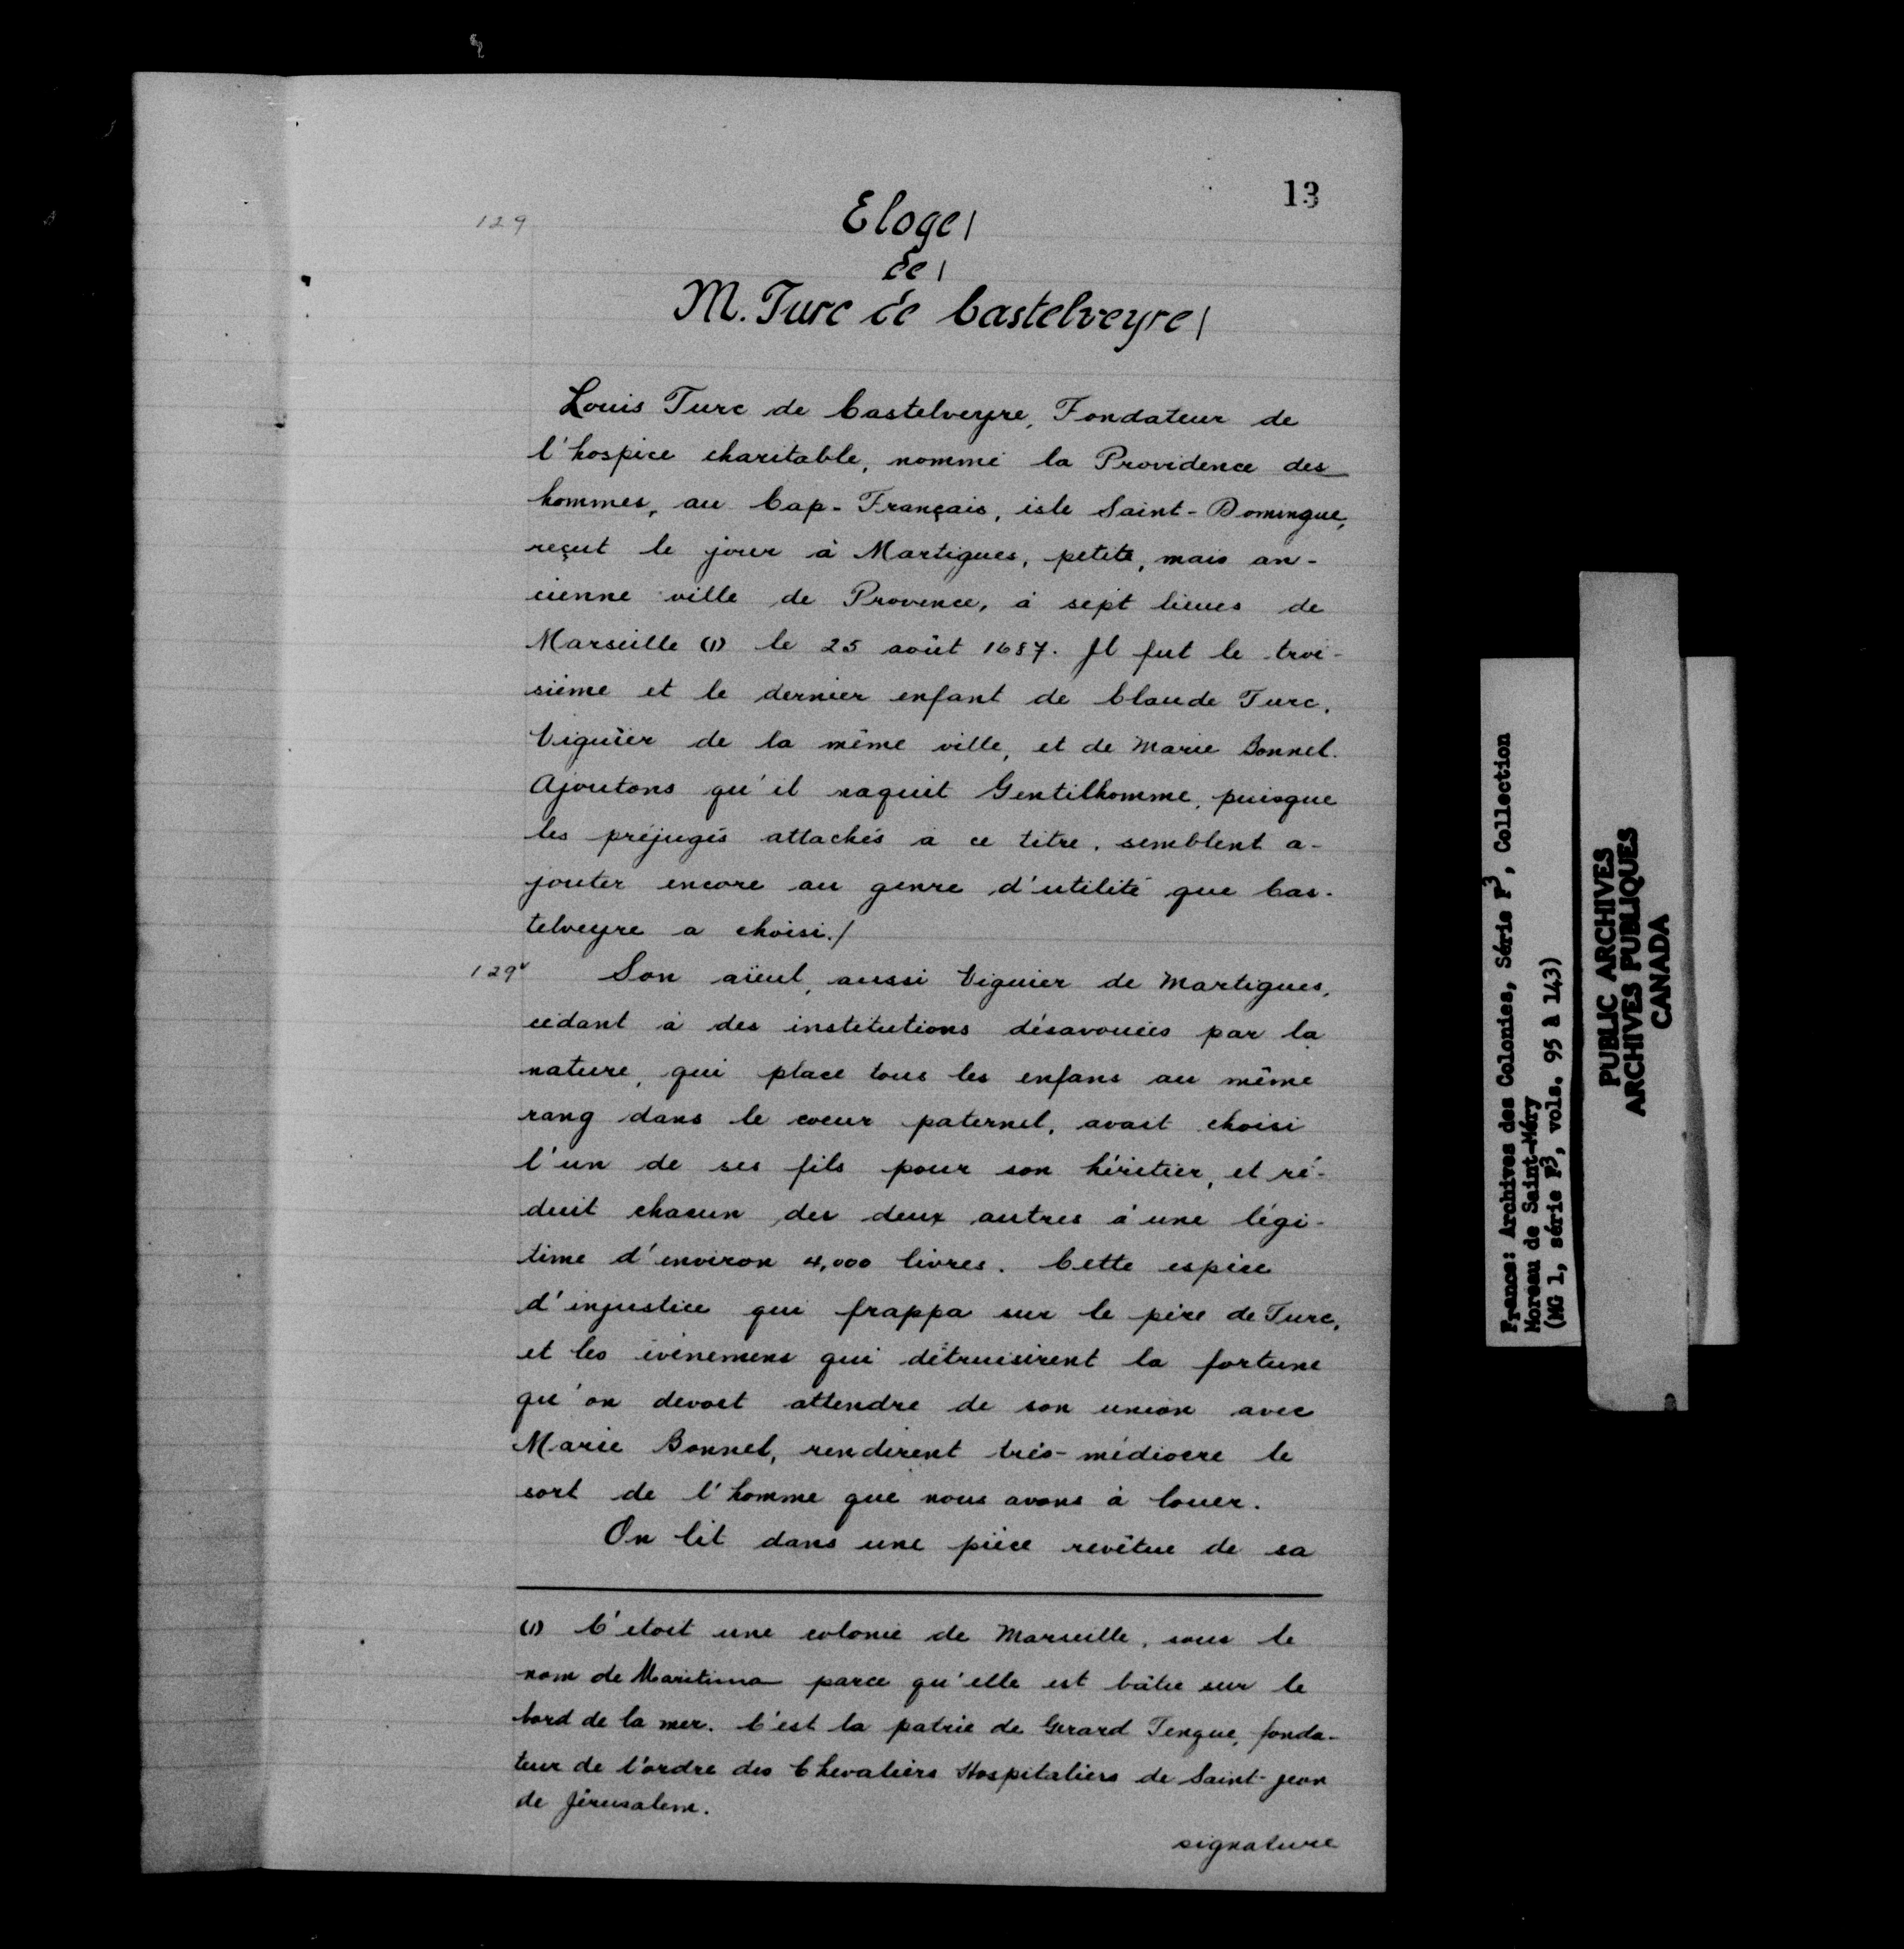 13
129
Eloge/
de/
M. Turc de Castelveyre/
Louis Turc de Castelveyre, Fondateur de
l'hospice charitable, nommé la Providence des
hommes, au Cap-Français, isle Saint-Domingue,
reçut le jour à Martigues, petite, mais an-
cienne ville de Provence, à sept lieues de
Marseille (1) le 25 août 1687. Il fut le troi-
sième et le dernier enfant de Claude Turc,
Viguier de la même ville, et de Marie Bonnel.
Ajoutons qu'il naquit Gentilhomme, puisque
les préjugés attachés à ce titre, semblent a-
jouter encore au genre d'utilité que Cas-
telveyre a choisi./
129v Son aïeul, aussi Viguier de Martigues,
cédant à des institutions désavouées par la
nature, qui place tous les enfans au même
rang dans le coeur paternel, avait choisi
l'un de ses fils pour son héritier, et ré-
duit chacun des deux autres à une légi-
time d'environ 4,000 livres. Cette espèce
d'injustice qui frappa sur le père de Turc,
et les évènemens qui détruisirent la fortune
qu'on devoit attendre de son union avec
Marie Bonnel, rendirent très-médiocre le
sort de l'homme que nous avons à louer.
On lit dans une pièce revêtue de sa
(1) C'étoit une colonie de Marseille, sous le
nom de Maritima parce qu'elle est bâtie sur le
bord de la mer. C'est la patrie de Gerard Tenque, fonda-
teur de l'ordre des Chevaliers Hospitaliers de Saint-Jean
de Jérusalem.
signature
France: Archives des Colonies, Série F3, Collection
Moreau de Saint-Méry
(MG 1, série F3, vols. 95 à 143)
PUBLIC ARCHIVES
ARCHIVES PUBLIQUES
CANADA